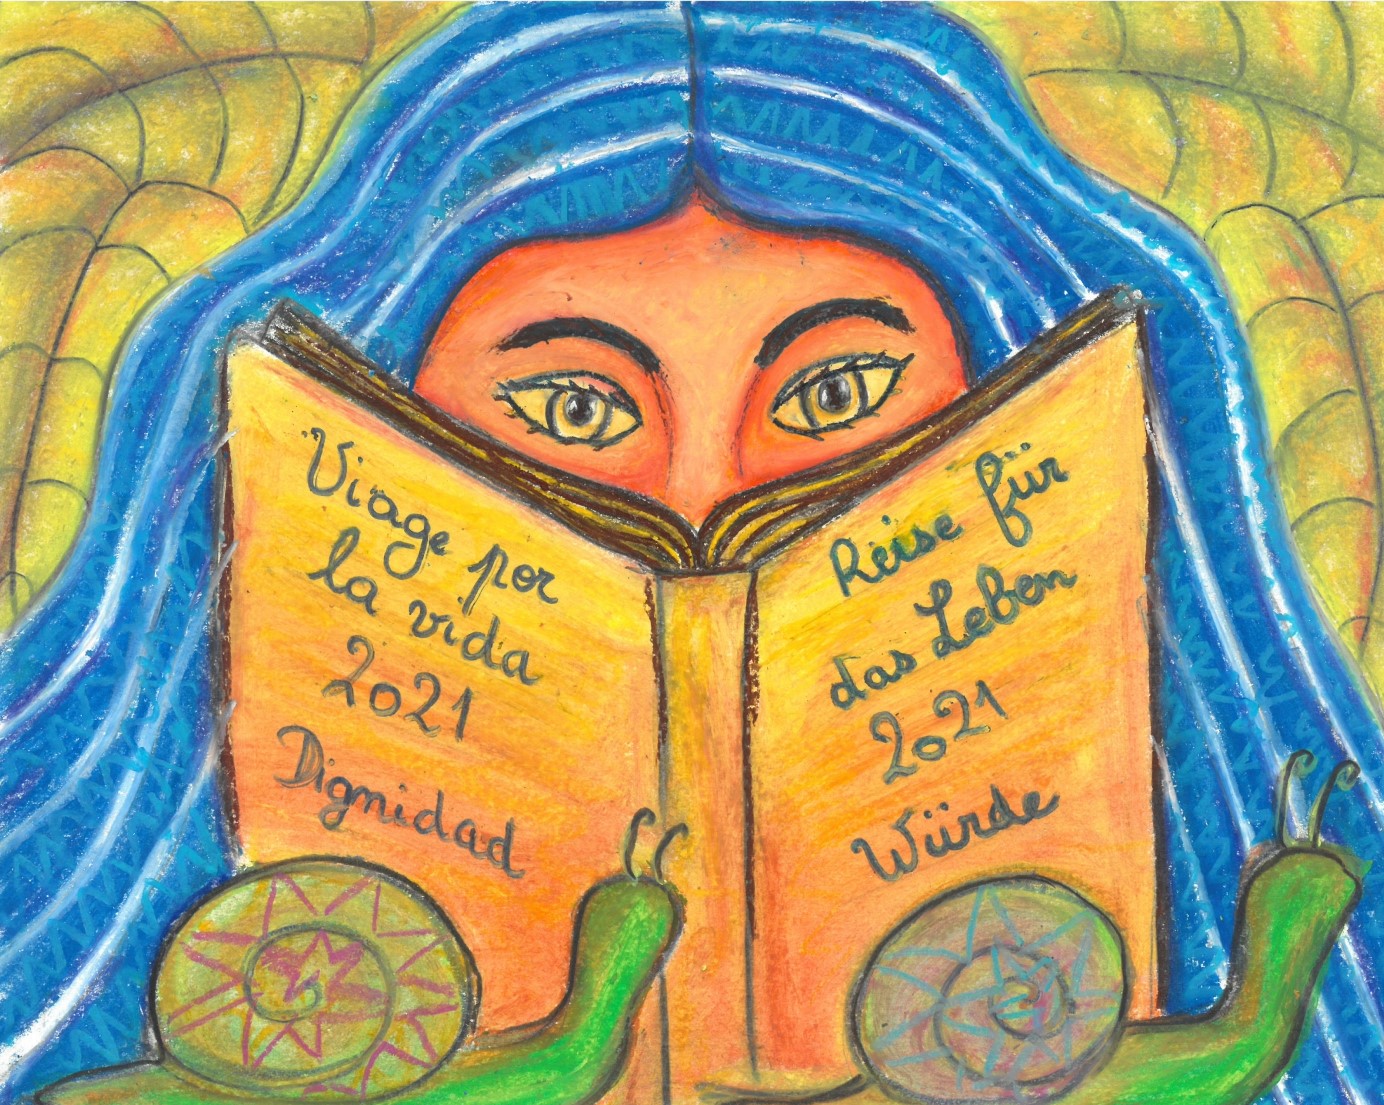 Viage por
la vida
2021
Dignidad
Reise für
das Leben
2021
Würde